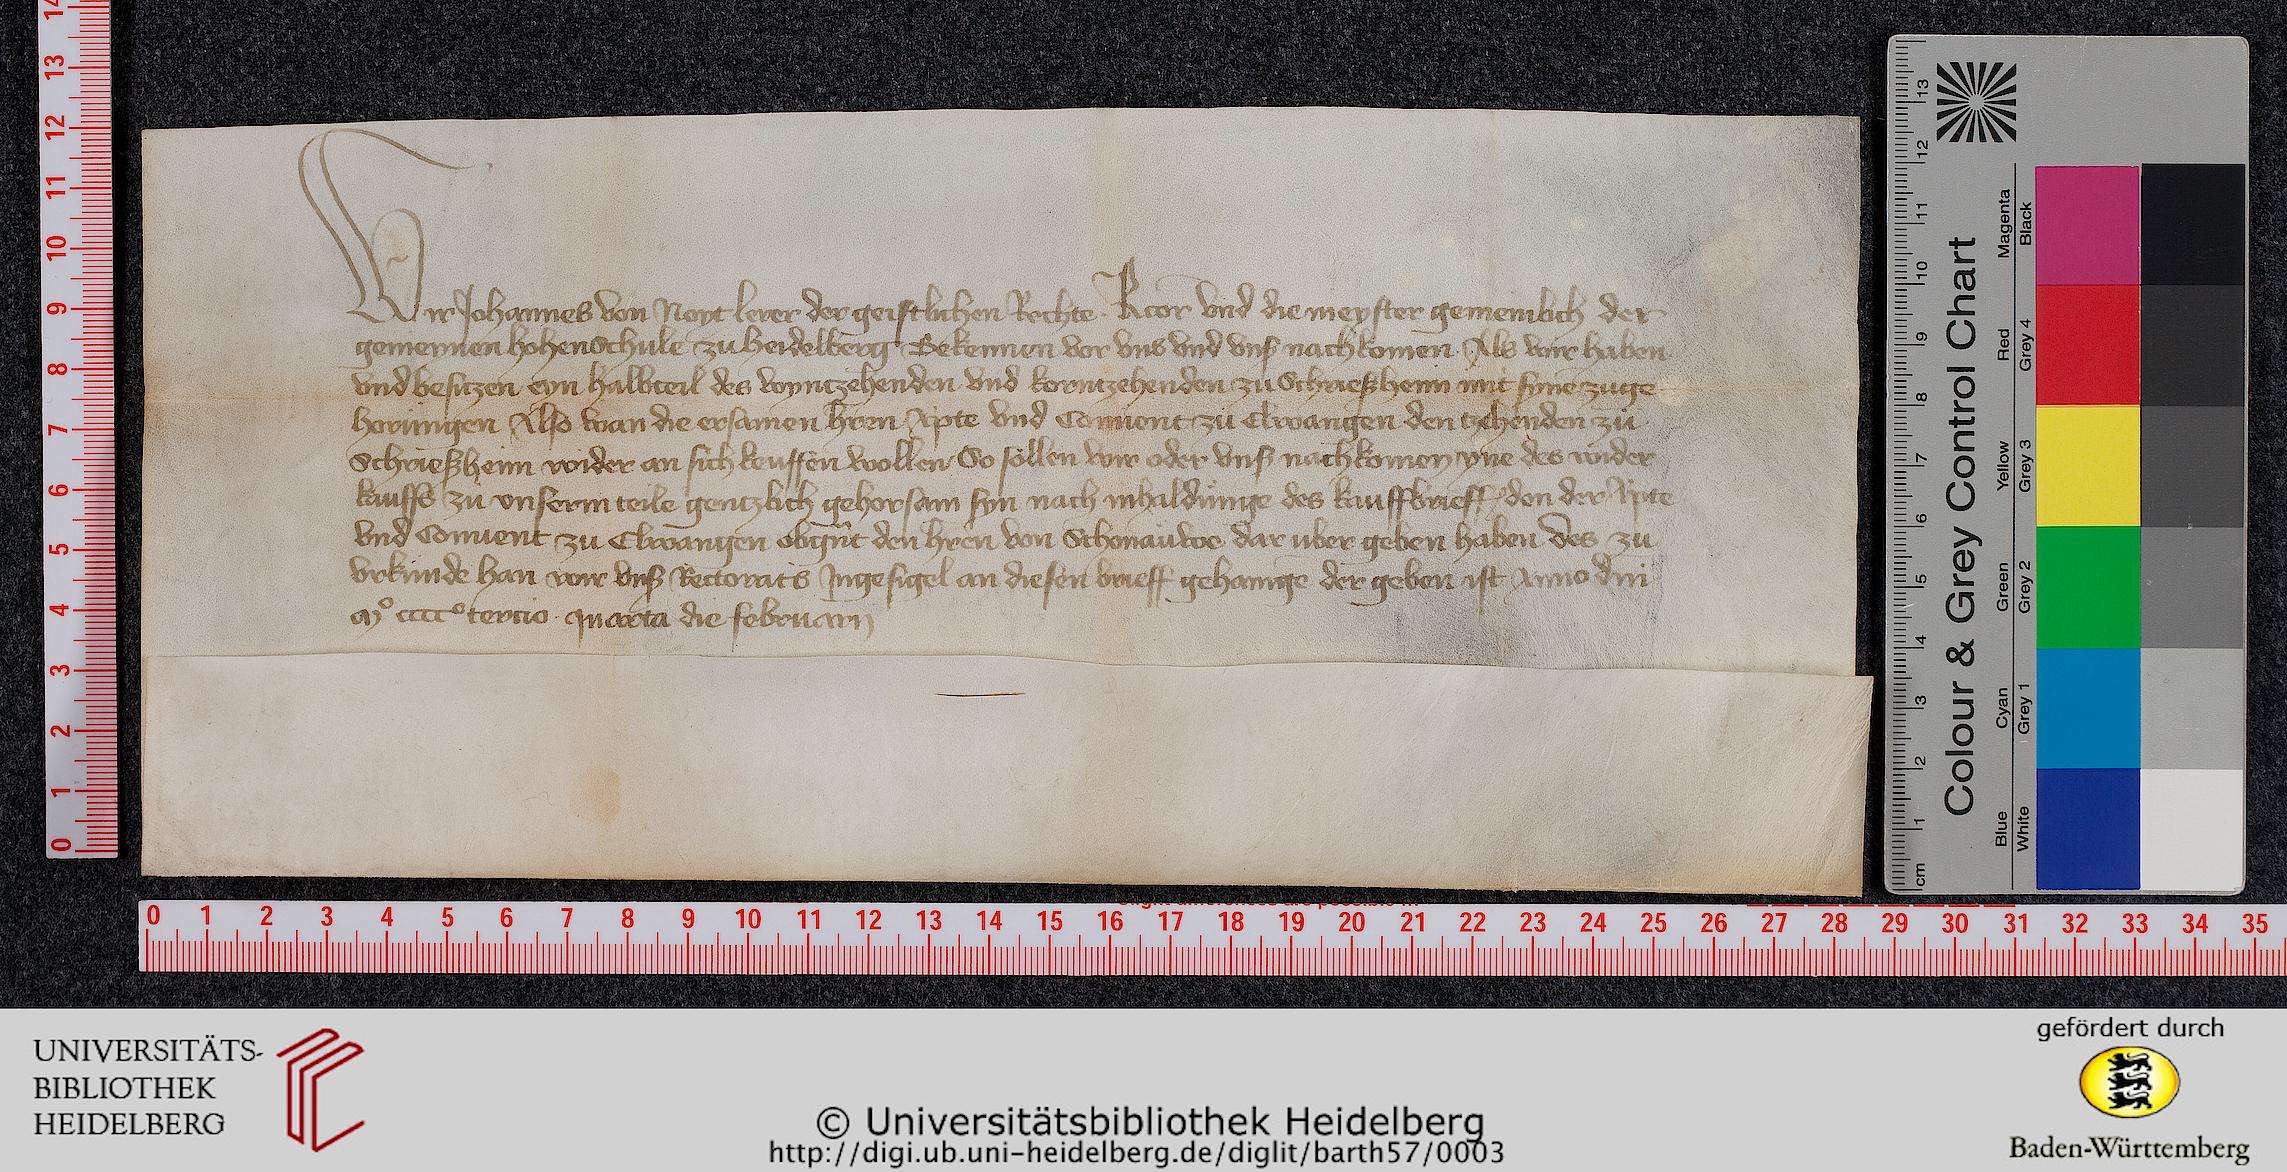 Wir Johannes von Noyt lerer der geistlichen Rechte Rector vnd die meyster gemeinlich der
gemeynen hohenschule zu heidelberg Bekennen vor vns vnd vnß nachkomen Als wir haben
vnd besitzen eyn halbteil des wyntzehenden vnd korntzehenden zu Schrießheim mit syne zuge
horungen Also wan die ersamen hren Apte vnd Conuent zu Elwangen den tzehenden zu
Schrießheim wider an sich keuffen wollen So sollen wir oder vnß nachkomen yne des wider
kauffs zu vnserm teile gentzlich gehorsam syn nach inhaldunge des kauffbrieff den der Apte
vnd Conuent zu Elwangen obgnt den hren von Schonauwe dar uber geben haben des zu
vrkunde han wir vnß Rectorats Ingesigel an diesen brieff gehange der geben ist Anno dni
Mº ccccº tercio · quarta die februarij
UNIVERSITÄTS-
BIBLIOTHEK
HEIDELBERG
© Universitätsbibliothek Heidelberg
http://digi.ub.uni-heidelberg.de/diglit/barth57/0003
gefördert durch
Baden-Württemberg
Colour & Grey Control Chart
Blue Cyan Green Yellow Red Magenta
White Grey 1 Grey 2 Grey 3 Grey 4 Black
cm 1 2 3 4 5 6 7 8 9 10 11 12 13
0 1 2 3 4 5 6 7 8 9 10 11 12 13 14
0 1 2 3 4 5 6 7 8 9 10 11 12 13 14 15 16 17 18 19 20 21 22 23 24 25 26 27 28 29 30 31 32 33 34 35